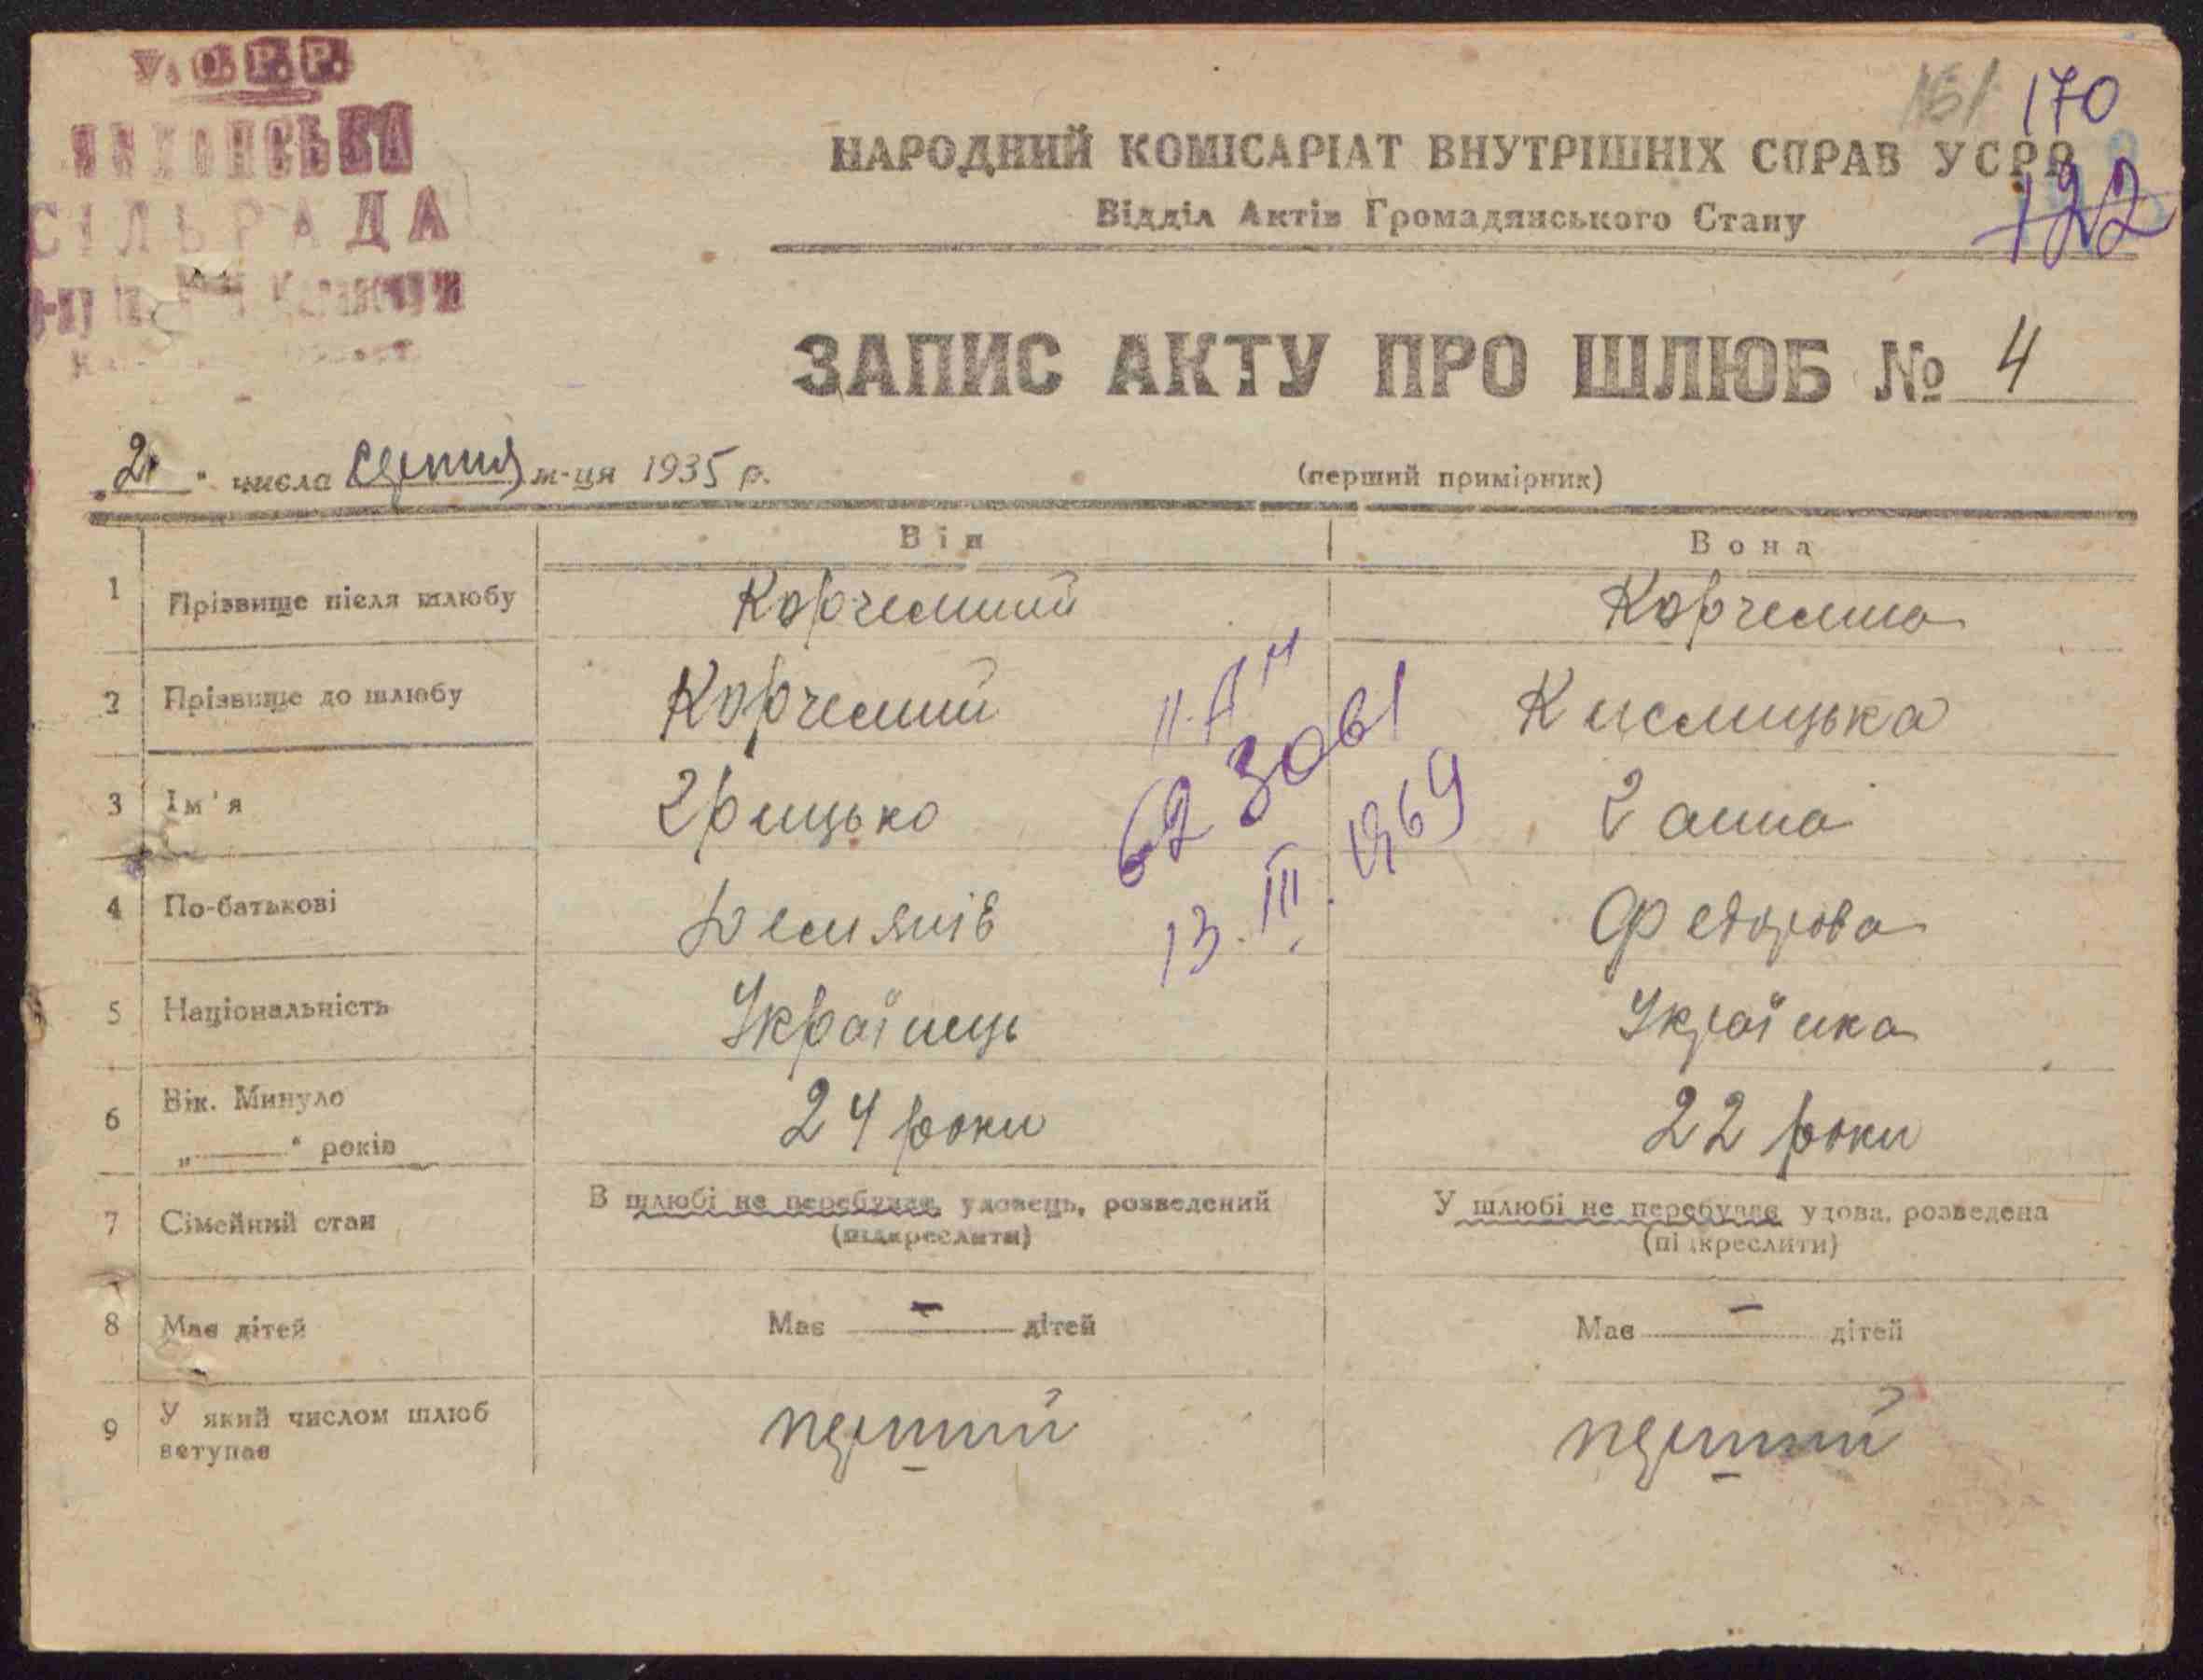 У.С.Р.Р.
СІЛЬРАДА
151 170
НАРОДНИЙ КОМІСАРІАТ ВНУТРІШНІХ СПРАВ УСРР
122
Відділ Актів Громадянського Стану
ЗАПИС АКТУ ПРО ШЛЮБ № 4
числа серпня м-ця 1935 р.
(перший примірник)
Він Вона
1 Прізвище після шлюбу Корчемний Корчемна
2 Прізвище до шлюбу Корчемний Кислицька
3 Ім'я Грицько Ганна
4 По-батькові Демянів Федорова
5 Національність Українець Українка
6 Вік. Минуло 24 роки 22 роки
„ “ років
7 Сімейний стан В шлюбі не перебуває, удовець, розведений У шлюбі не перебуває удова, розведена
(підкреслити) (підкреслити)
8 Має дітей Має – дітей Має – дітей
9 У який числом шлюб перший перший
вступає
II-АП
62 3061
13.III.1969